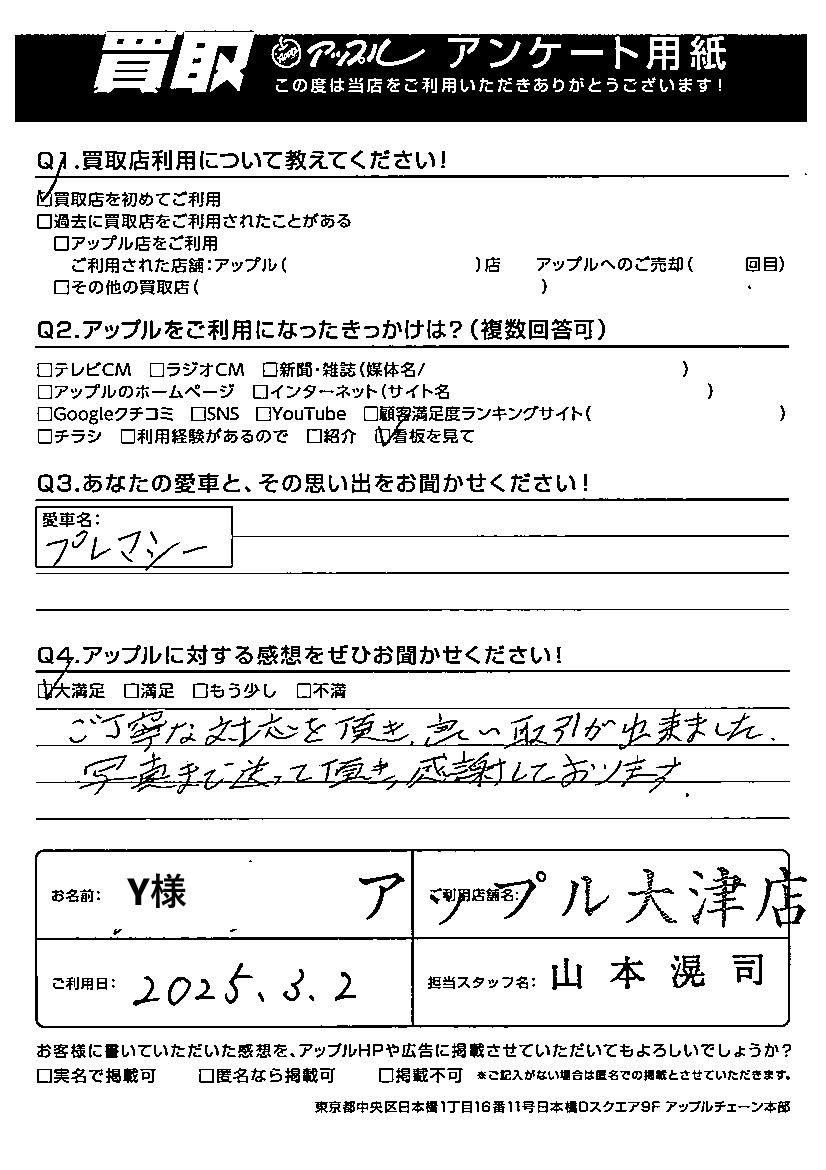 買取 アップル アンケート用紙
この度は当店をご利用いただきありがとうございます!
Q1.買取店利用について教えてください!
☑買取店を初めてご利用
□過去に買取店をご利用されたことがある
□アップル店をご利用
ご利用された店舗:アップル( )店 アップルへのご売却( 回目)
□その他の買取店( )
Q2.アップルをご利用になったきっかけは?(複数回答可)
□テレビCM □ラジオCM □新聞・雑誌(媒体名/ )
□アップルのホームページ □インターネット(サイト名 )
□Googleクチコミ □SNS □YouTube □顧客満足度ランキングサイト( )
□チラシ □利用経験があるので □紹介 ☑看板を見て
Q3.あなたの愛車と、その思い出をお聞かせください!
愛車名:
プレマシー
Q4.アップルに対する感想をぜひお聞かせください!
☑大満足 □満足 □もう少し □不満
ご丁寧な対応を頂き、良い取引が出来ました.
写真まで送って頂き、感謝しております.
お名前: Y様 ご利用店舗名: アップル大津店
ご利用日: 2025.3.2 担当スタッフ名: 山本滉司
お客様に書いていただいた感想を、アップルHPや広告に掲載させていただいてもよろしいでしょうか?
□実名で掲載可 □匿名なら掲載可 □掲載不可 ※ご記入がない場合は匿名での掲載とさせていただきます。
東京都中央区日本橋1丁目16番11号日本橋Dスクエア9F アップルチェーン本部